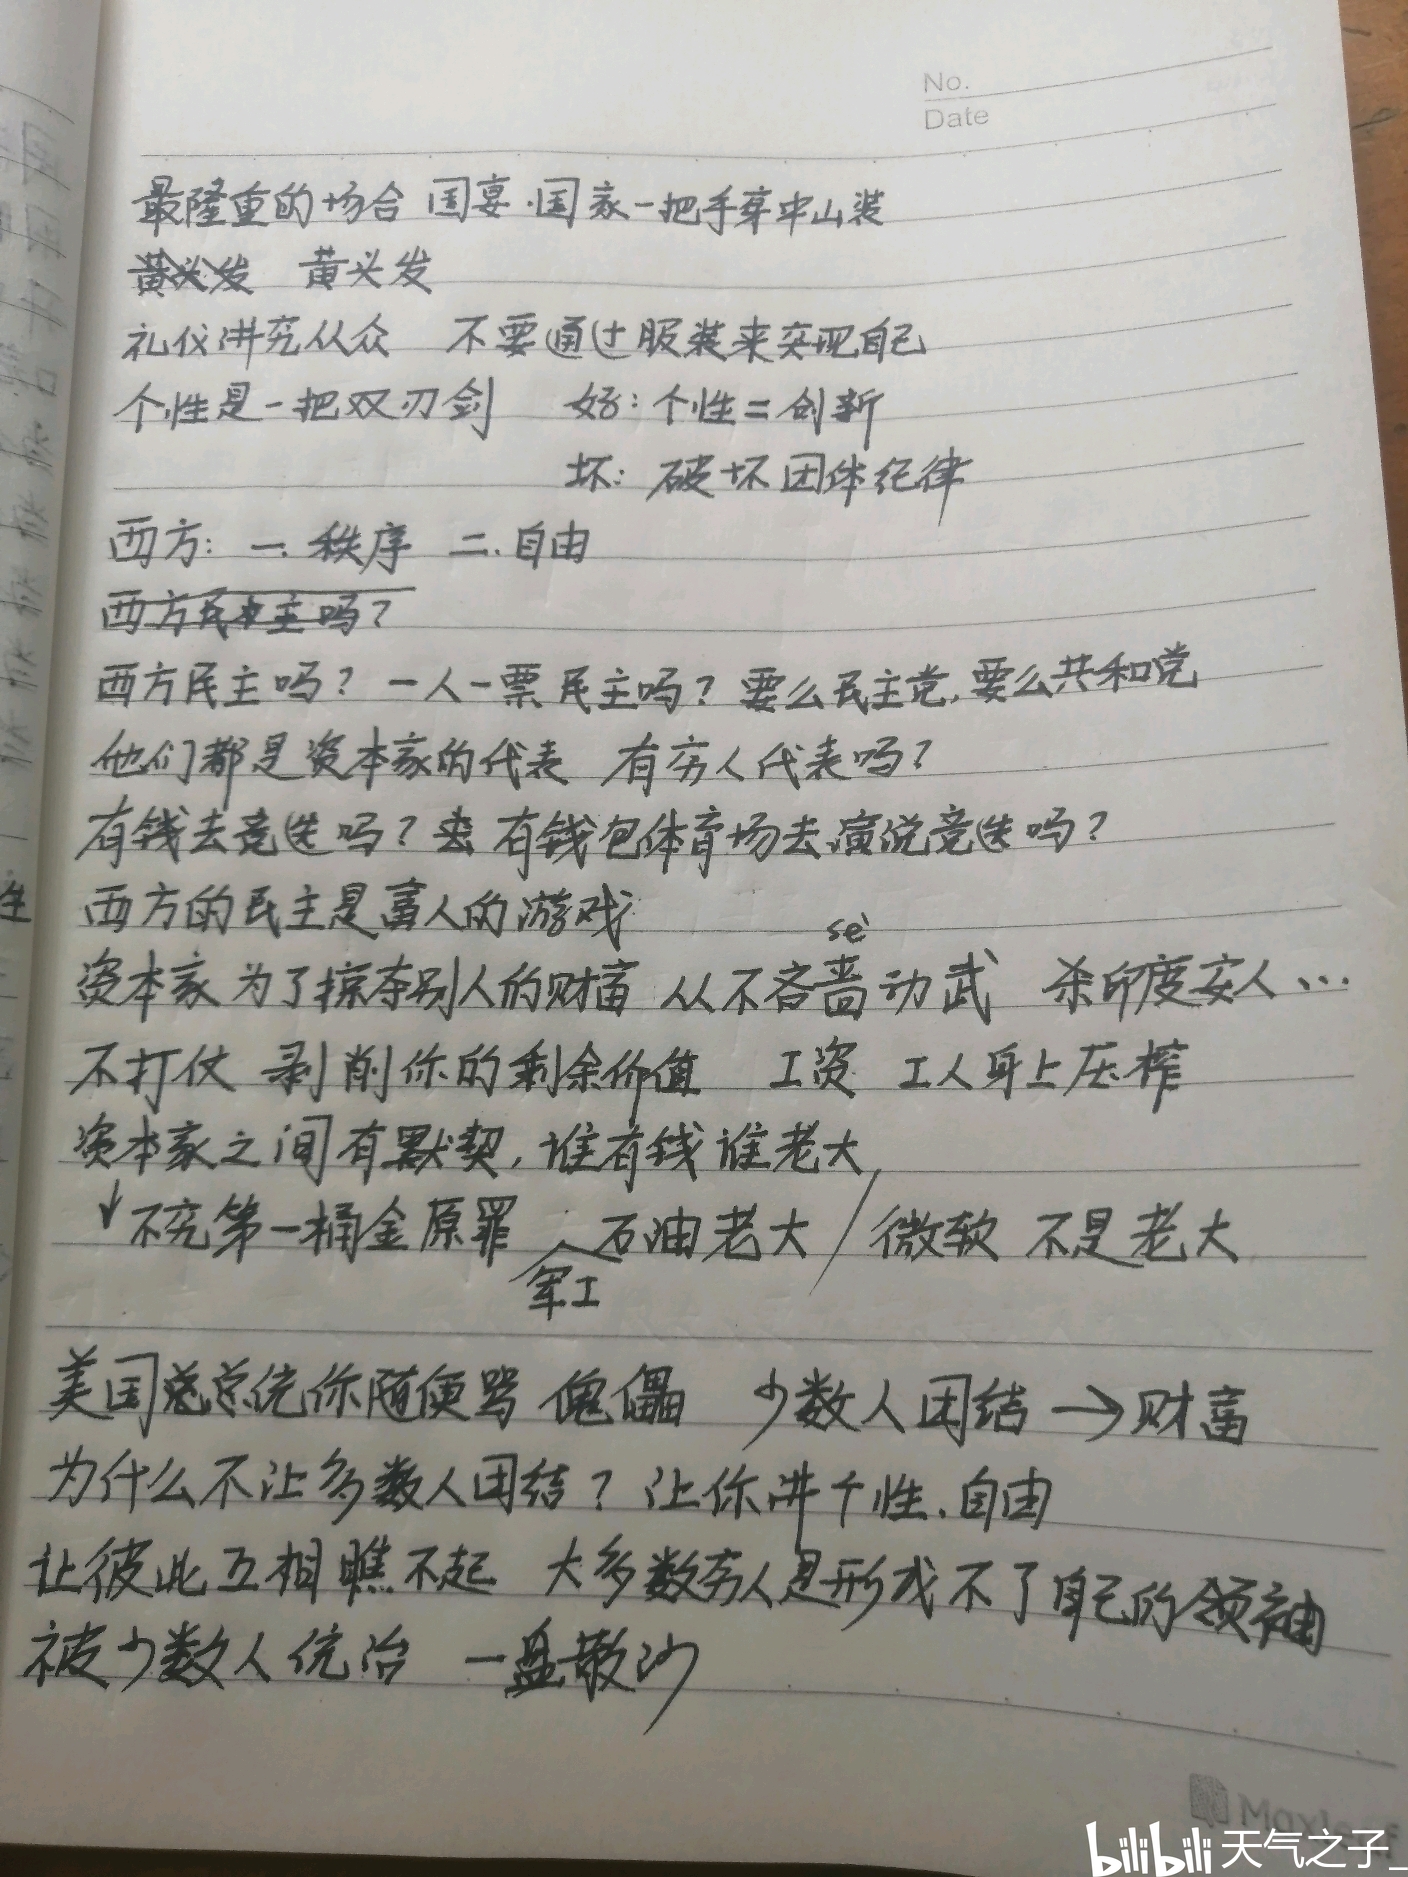 No.
Date
最隆重的场合 国宴·国家一把手穿中山装
黄头发 黄头发
礼仪讲究从众 不要通过服装来突现自己
个性是一把双刃剑 好:个性=创新
坏:破坏团体纪律
西方:一.秩序 二.自由
西方民主吗?
西方民主吗?一人一票民主吗?要么民主党,要么共和党
他们都是资本家的代表 有穷人代表吗?
有钱去竞选吗?去 有钱包体育场去演说竞选吗?
西方的民主是富人的游戏
sè
资本家为了掠夺别人的财富 从不吝啬动武 杀印度安人…
不打仗 剥削你的剩余价值 工资 工人身上压榨
资本家之间有默契,谁有钱谁老大,
↓不究第一桶金原罪 石油老大/微软 不是老大
军工
美国总统你随便骂 傀儡 少数人团结→财富
为什么不让多数人团结?让你讲个性.自由
让彼此互相瞧不起 大多数穷人是形成不了自己的领袖
被少数人统治 一盘散沙
bilibili 天气之子_